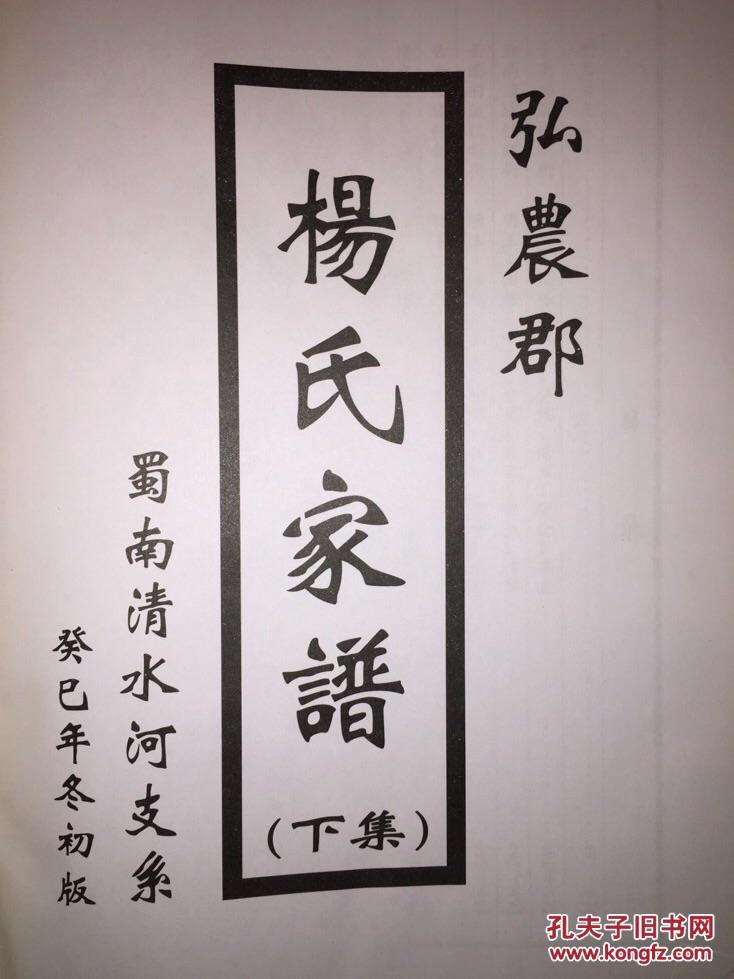 弘農郡
楊氏家譜
（下集）
蜀南清水河支系
癸巳年冬初版
孔夫子旧书网
www.kongfz.com